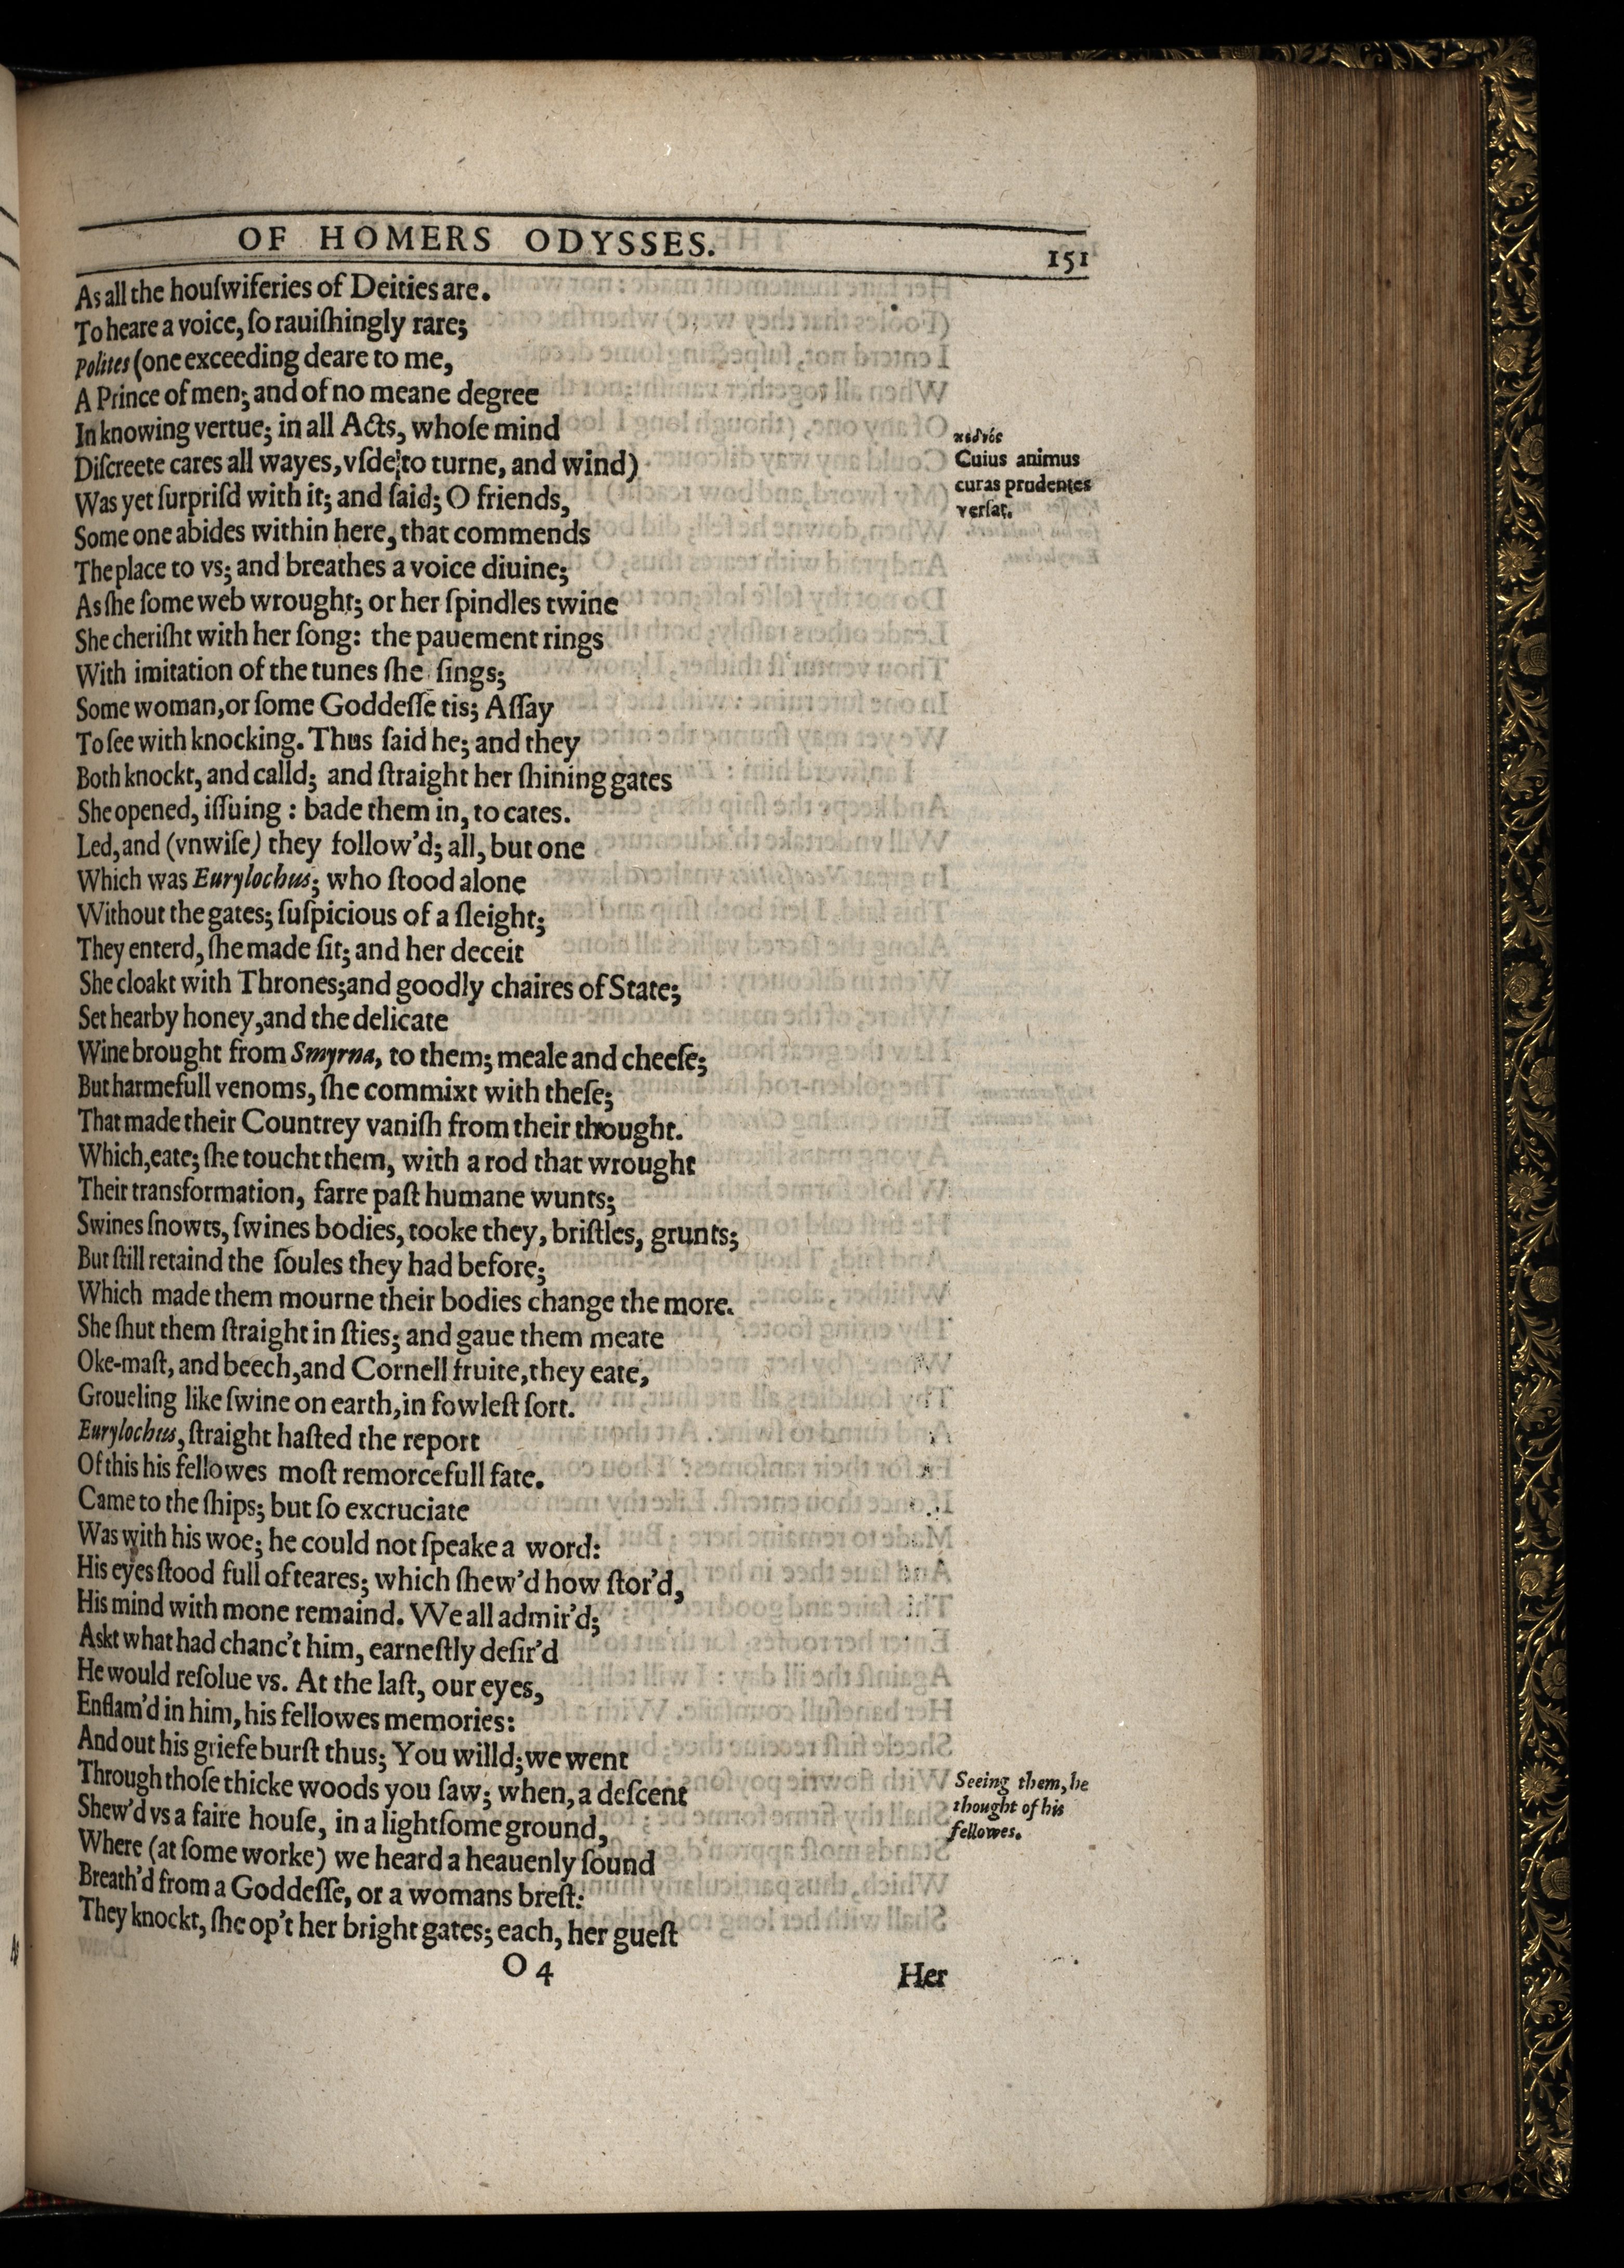 OF HOMERS ODYSSES.
151
As all the houſwiferies of Deities are.
To heare a voice, ſo rauiſhingly rare;
Polites (one exceeding deare to me,
A Prince of men; and of no meane degree
In knowing vertue; in all Acts, whoſe mind
Diſcreete cares all wayes, vſde to turne, and wind)
Was yet ſurpriſd with it; and ſaid; O friends,
Some one abides within here, that commends
The place to vs; and breathes a voice diuine;
As ſhe ſome web wrought; or her ſpindles twine
She cheriſht with her ſong: the pauement rings
With imitation of the tunes ſhe ſings;
Some woman, or ſome Goddeſſe tis; Aſſay
To ſee with knocking. Thus ſaid he; and they
Both knockt, and calld; and ſtraight her ſhining gates
She opened, iſſuing: bade them in, to cates.
Led, and (vnwiſe) they follow'd; all, but one
Which was Eurylochus; who ſtood alone
Without the gates; ſuſpicious of a ſleight;
They enterd, ſhe made ſit; and her deceit
She cloakt with Thrones; and goodly chaires of State;
Set hearby honey, and the delicate
Wine brought from Smyrna, to them; meale and cheeſe;
But harmefull venoms, ſhe commixt with theſe;
That made their Countrey vaniſh from their thought.
Which, eate; ſhe toucht them, with a rod that wrought
Their transformation, farre paſt humane wunts;
Swines ſnowts, ſwines bodies, tooke they, briſtles, grunts;
But ſtill retaind the ſoules they had before;
Which made them mourne their bodies change the more.
She ſhut them ſtraight in ſties; and gaue them meate
Oke-maſt, and beech, and Cornell fruite, they eate,
Groueling like ſwine on earth, in fowleſt ſort.
Eurylochus, ſtraight haſted the report
Of this his fellowes moſt remorcefull fate.
Came to the ſhips; but ſo excruciate
Was with his woe; he could not ſpeake a word:
His eyes ſtood full of teares; which ſhew'd how ſtor'd,
His mind with mone remaind. We all admir'd;
Askt what had chanc't him, earneſtly deſir'd
He would reſolue vs. At the laſt, our eyes,
Enflam'd in him, his fellowes memories:
And out his griefe burſt thus; You willd; we went
Through thoſe thicke woods you ſaw; when, a deſcent
Shew'd vs a faire houſe, in a lightſome ground,
Where (at ſome worke) we heard a heauenly ſound
Breath'd from a Goddeſſe, or a womans breſt:
They knockt, ſhe op't her bright gates; each, her gueſt
O 4
Her
κεδνός
Cuius animus
curas prudentes
verſat.
Seeing them, he
thought of his
fellowes.